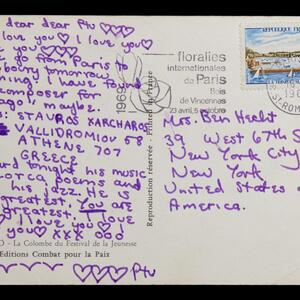 dear dear Ptv ♡♡♡
love you ♡ I love you
♡ you ♡♡♡♡
go from Paris to
tomorrow
I have found
for
ago", maybe.
: STAUROS XARCHAKOS
VALLIDROMIOU 58
ATHENE 707
GREECE
tonight his music
Lorca poems and
his jazz. He is
greatest. You are
greatest. I love
you ♡ I love you
you ♡ XXX ooo!
♡♡♡ Ptv
O - La Colombe du Festival de la Jeunesse
Editions Combat pour la Paix
Reproduction réservée - Printed in France
1969
floralies
internationales
de Paris
Bois
de Vincennes
23 avril, 5 octobre
REPUBLIQUE FR
Mrs. Ben Healt
39 West 67th S
New York City
New York
United States o
America.